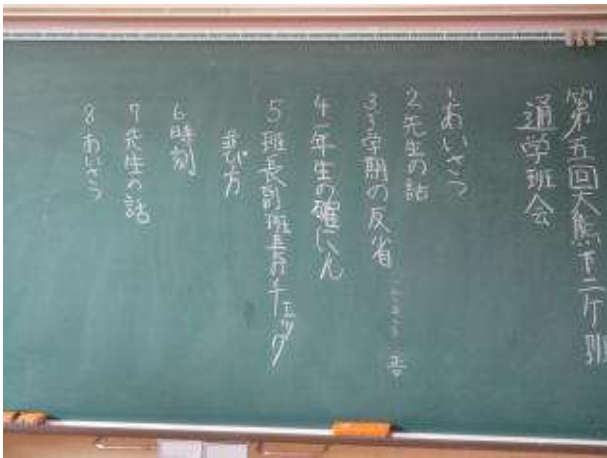 第五回大熊下二ケ班
通学班会
1あいさつ
2先生の話
33学期の反省
4一年生の確にん
5班長副班長チェック
並び方
6時刻
7先生の話
8あいさつ